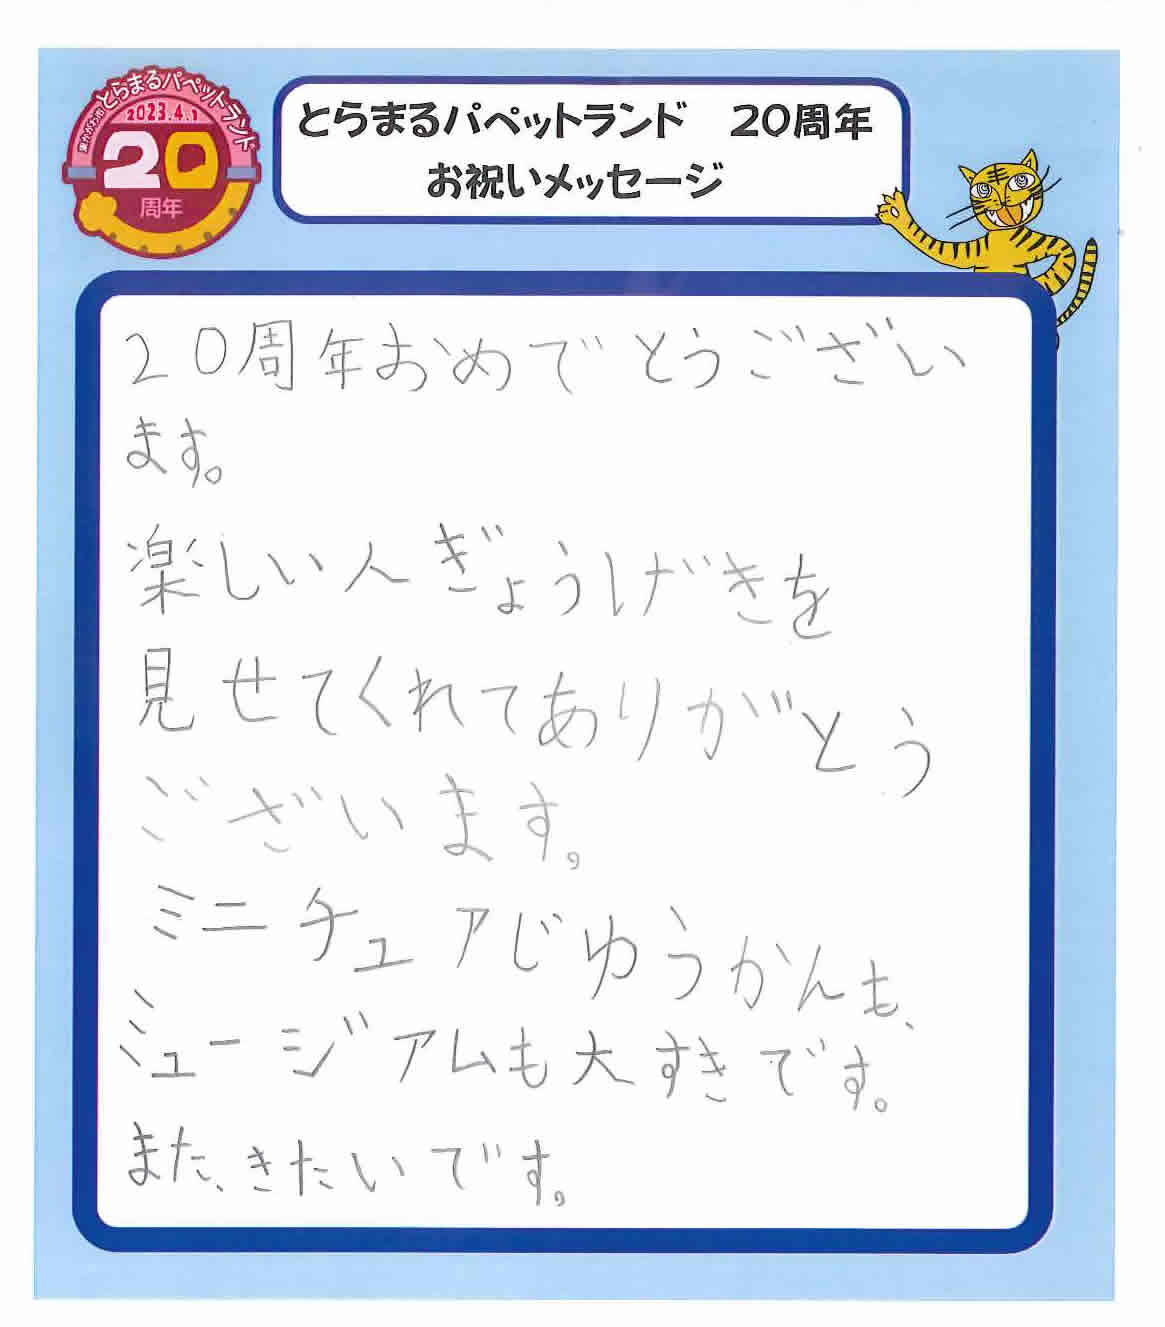 東かがわ市
とらまるパペットランド
2023.4.1
20
周年
とらまるパペットランド　20周年
お祝いメッセージ
20周年おめでとうござい
ます。
楽しい人ぎょうげきを
見せてくれてありがとう
ございます。
ミニチュアじゆうかんも、
ミュージアムも大すきです。
また、きたいです。